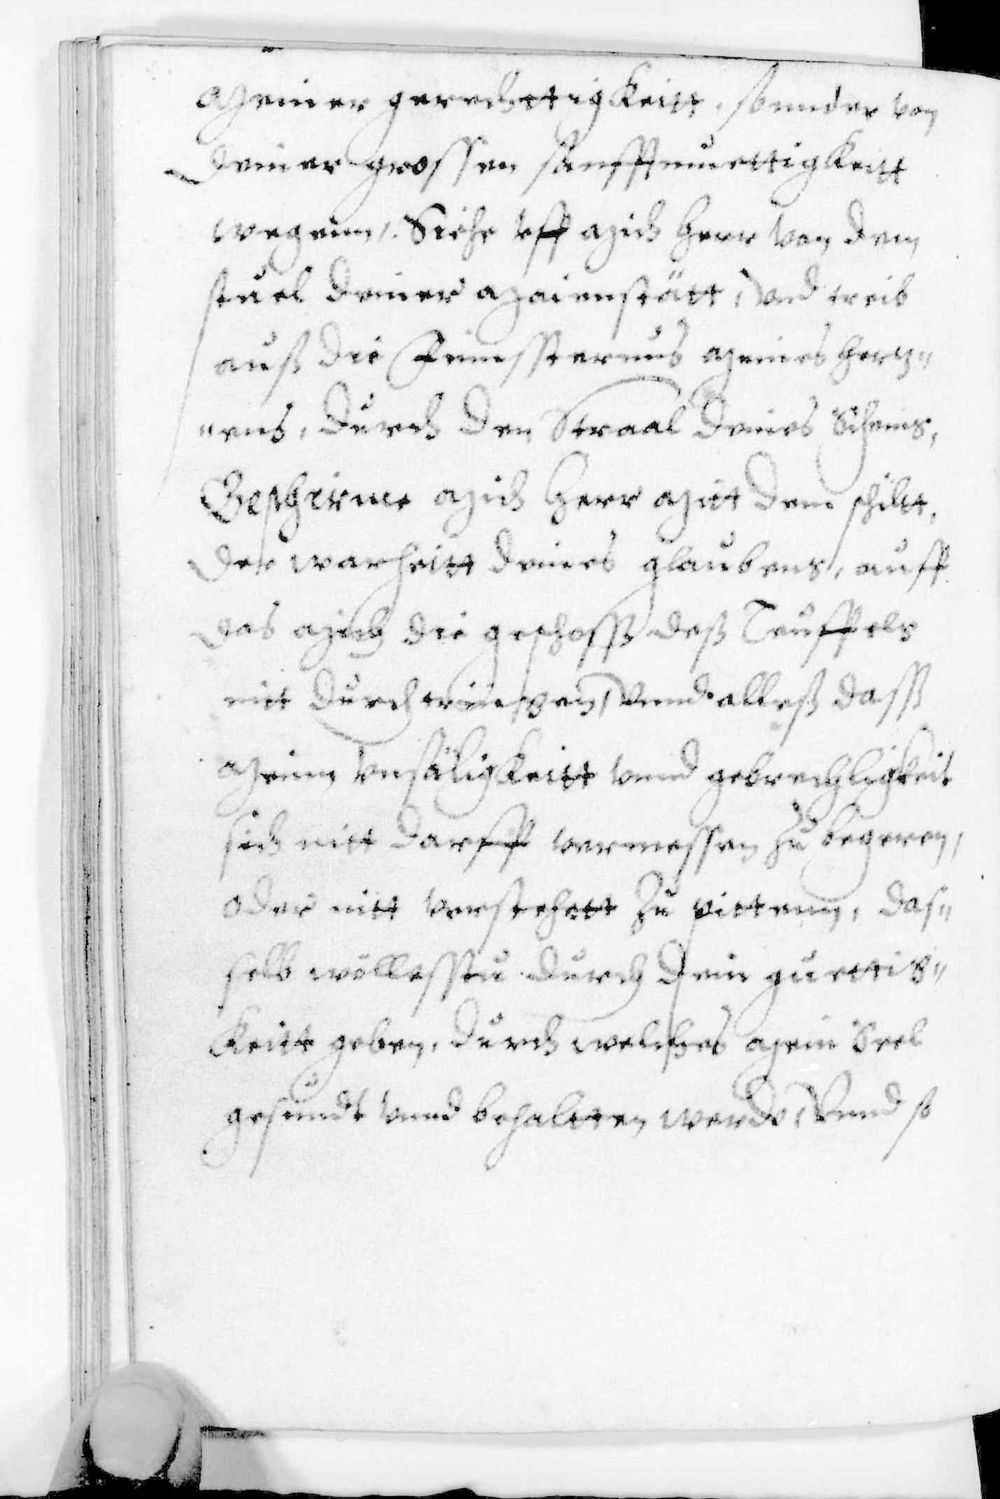 Meiner gerechttigKeitt, sonnder von
deiner grossen sanfftmuettigKeitt
wegenn, Siehe vff mich Herr von dem
stuel deiner Maienstätt, Vnd treib
auß die Finnssternus meines Hertz"
"ens, durch den Straal deines Scheins,
Beschirme mich Herr mitt dem schiltt,
der warheitt deines glaubens, auff
das mich die geschosß deß Teuffels
nit durchtringen, Vnnd alleß dasß
Mein vnsäligKeitt vnnd gebrechligkeit
sich nitt darff vermessen zu begeren,
oder nitt verstehett zu pittenn, das"
selb wöllesstu durch dein guettig"
Keitt geben, durch welches mein Seel
gesundt vnnd behaltten werde, Vnnd so